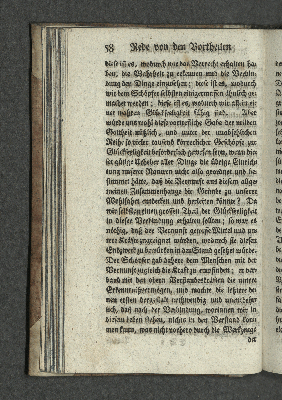 58 Rede von den Vortheilen
diese ist es, wodurch wir das Vorrecht erhalten ha-
ben, die Wahrheit zu erkennen und die Verbin-
dung der Dinge einzusehen; diese ist es, wodurch
wir dem Schöpfer selbst einigermaßen ähnlich ge-
machet werden; diese ist es, wodurch wir allein ei-
ner wahren Glückseligkeit fähig sind. Aber
würde uns wohl diese vortreffliche Gabe der milden
Gottheit nützlich, und unter der unabsehlichen
Reihe so vieler tausend körperlicher Geschöpfe zur
Glückseligkeit beförderlich gewesen seyn, wenn die-
ser gütige Urheber aller Dinge die weise Einrich-
tung unserer Naturen nicht also geordnet und be-
stimmet hätte, daß die Vernunft aus diesem allge-
meinen Zusammenhange die Gründe zu unserer
Wohlfahrt entdecken und herleiten könnte? Da
wir selbst einen großen Theil der Glückseligkeit
in dieser Verbindung erhalten sollten; so war es
nöthig, daß der Vernunft gewisse Mittel und un-
tere Kräfte zugeeignet würden, wodurch sie diesen
Endzweck zu bewirken in den Stand gesetzet würde.
Der Schöpfer gab daher dem Menschen mit der
Vernunft zugleich die Kraft zu empfinden; er ver-
band mit den obern Verstandeskräften die untern
Erkenntnißvermögen, und machte die letztere de-
nen ersten dergestalt nothwendig und unentbehr-
lich, daß nach der Verbindung, worinnen wir in
diesem Leben stehen, nichts in den Verstand kom-
men kann, was nicht vorhero durch die Werkzeuge
der